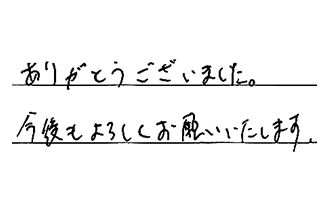 ありがとうございました。
今後もよろしくお願いいたします.